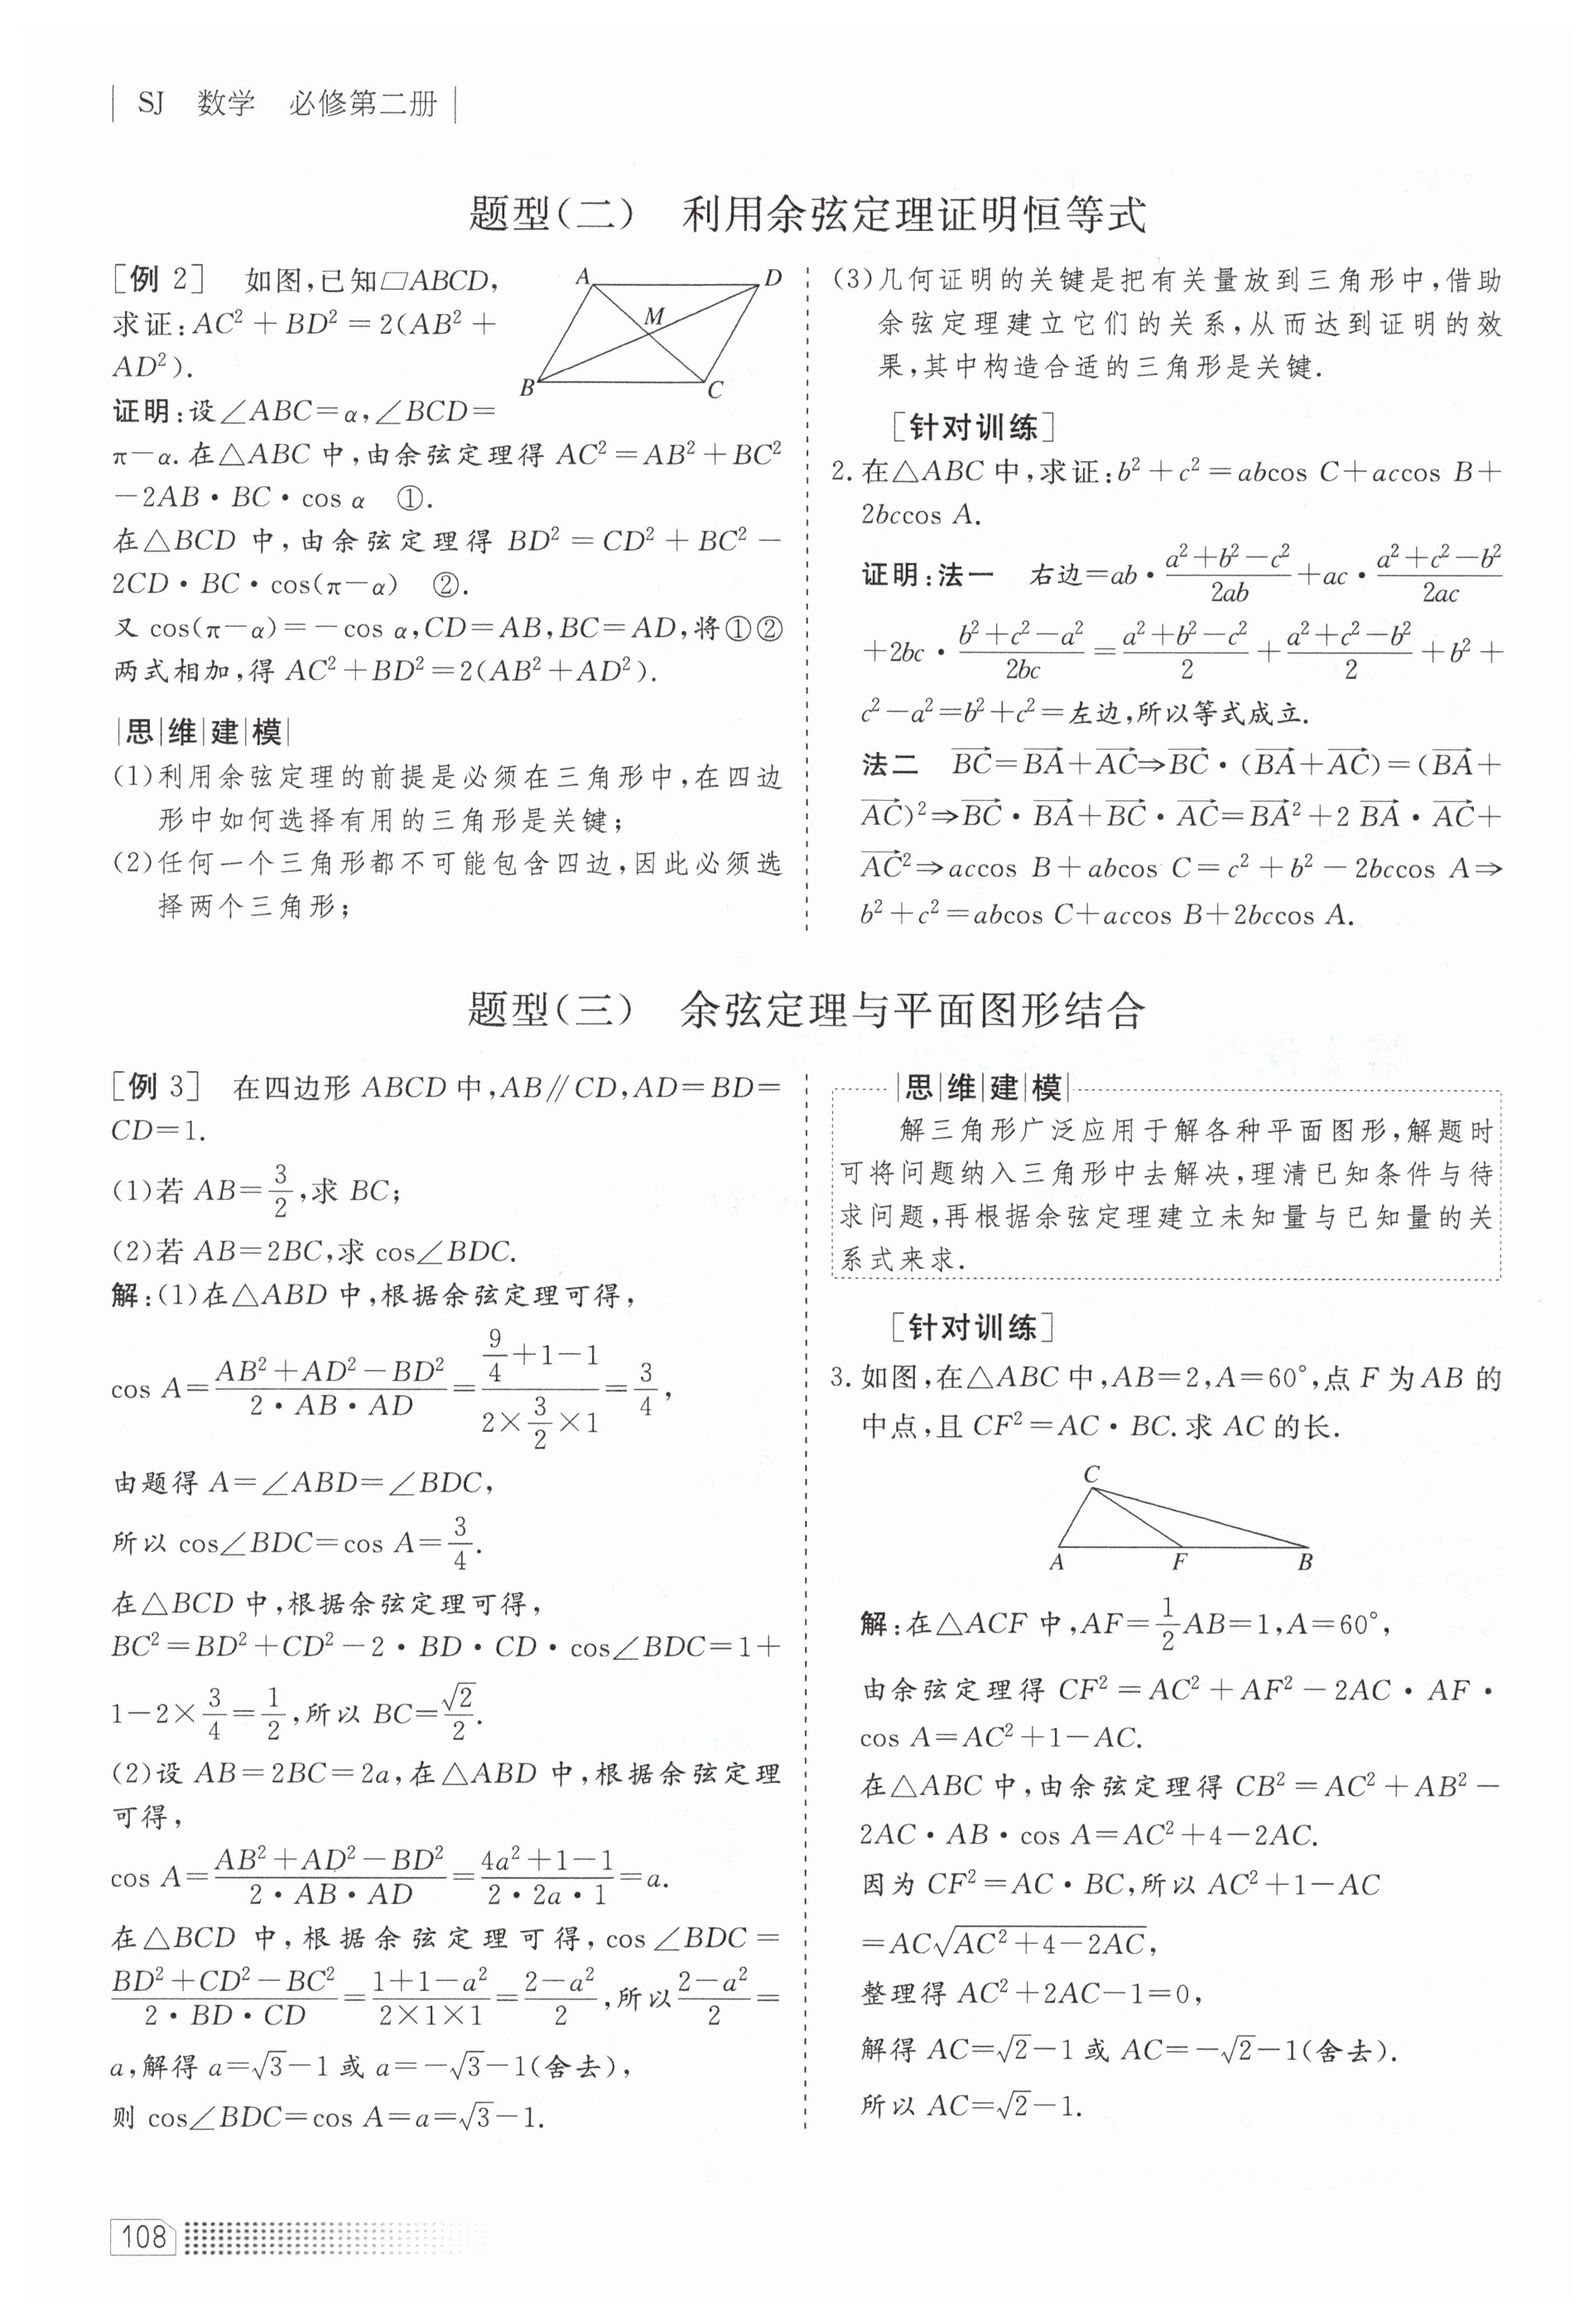 SJ 数学 必修第二册
题型(二) 利用余弦定理证明恒等式
[例 2] 如图,已知▱ABCD,
求证:AC²+BD²=2(AB²+
AD²).
A
D
M
B
C
证明:设∠ABC=α,∠BCD=
π-α.在△ABC 中,由余弦定理得 AC²=AB²+BC²
-2AB·BC·cos α ①.
在△BCD 中,由余弦定理得 BD²=CD²+BC²-
2CD·BC·cos(π-α) ②.
又 cos(π-α)=-cos α,CD=AB,BC=AD,将①②
两式相加,得 AC²+BD²=2(AB²+AD²).
|思|维|建|模|
(1)利用余弦定理的前提是必须在三角形中,在四边
形中如何选择有用的三角形是关键;
(2)任何一个三角形都不可能包含四边,因此必须选
择两个三角形;
(3)几何证明的关键是把有关量放到三角形中,借助
余弦定理建立它们的关系,从而达到证明的效
果,其中构造合适的三角形是关键.
[针对训练]
2.在△ABC 中,求证:b²+c²=abcos C+accos B+
2bccos A.
证明:法一 右边=ab·(a²+b²-c²)/2ab+ac·(a²+c²-b²)/2ac
+2bc·(b²+c²-a²)/2bc=(a²+b²-c²)/2+(a²+c²-b²)/2+b²+
c²-a²=b²+c²=左边,所以等式成立.
法二 B⃗C⃗=B⃗A⃗+A⃗C⃗⇒B⃗C⃗·(B⃗A⃗+A⃗C⃗)=(B⃗A⃗+
A⃗C⃗)²⇒B⃗C⃗·B⃗A⃗+B⃗C⃗·A⃗C⃗=B⃗A⃗²+2 B⃗A⃗·A⃗C⃗+
A⃗C⃗²⇒accos B+abcos C=c²+b²-2bccos A⇒
b²+c²=abcos C+accos B+2bccos A.
题型(三) 余弦定理与平面图形结合
[例 3] 在四边形 ABCD 中,AB∥CD,AD=BD=
CD=1.
(1)若 AB=3/2,求 BC;
(2)若 AB=2BC,求 cos∠BDC.
解:(1)在△ABD 中,根据余弦定理可得,
cos A=(AB²+AD²-BD²)/(2·AB·AD)=(9/4+1-1)/(2×3/2×1)=3/4,
由题得 A=∠ABD=∠BDC,
所以 cos∠BDC=cos A=3/4.
在△BCD 中,根据余弦定理可得,
BC²=BD²+CD²-2·BD·CD·cos∠BDC=1+
1-2×3/4=1/2,所以 BC=√2/2.
(2)设 AB=2BC=2a,在△ABD 中,根据余弦定理
可得,
cos A=(AB²+AD²-BD²)/(2·AB·AD)=(4a²+1-1)/(2·2a·1)=a.
在△BCD 中,根据余弦定理可得,cos∠BDC=
(BD²+CD²-BC²)/(2·BD·CD)=(1+1-a²)/(2×1×1)=(2-a²)/2,所以(2-a²)/2=
a,解得 a=√3-1 或 a=-√3-1(舍去),
则 cos∠BDC=cos A=a=√3-1.
|思|维|建|模|
解三角形广泛应用于解各种平面图形,解题时
可将问题纳入三角形中去解决,理清已知条件与待
求问题,再根据余弦定理建立未知量与已知量的关
系式来求.
[针对训练]
3.如图,在△ABC 中,AB=2,A=60°,点 F 为 AB 的
中点,且 CF²=AC·BC.求 AC 的长.
C
A
F
B
解:在△ACF 中,AF=1/2AB=1,A=60°,
由余弦定理得 CF²=AC²+AF²-2AC·AF·
cos A=AC²+1-AC.
在△ABC 中,由余弦定理得 CB²=AC²+AB²-
2AC·AB·cos A=AC²+4-2AC.
因为 CF²=AC·BC,所以 AC²+1-AC
=AC√(AC²+4-2AC),
整理得 AC²+2AC-1=0,
解得 AC=√2-1 或 AC=-√2-1(舍去).
所以 AC=√2-1.
108